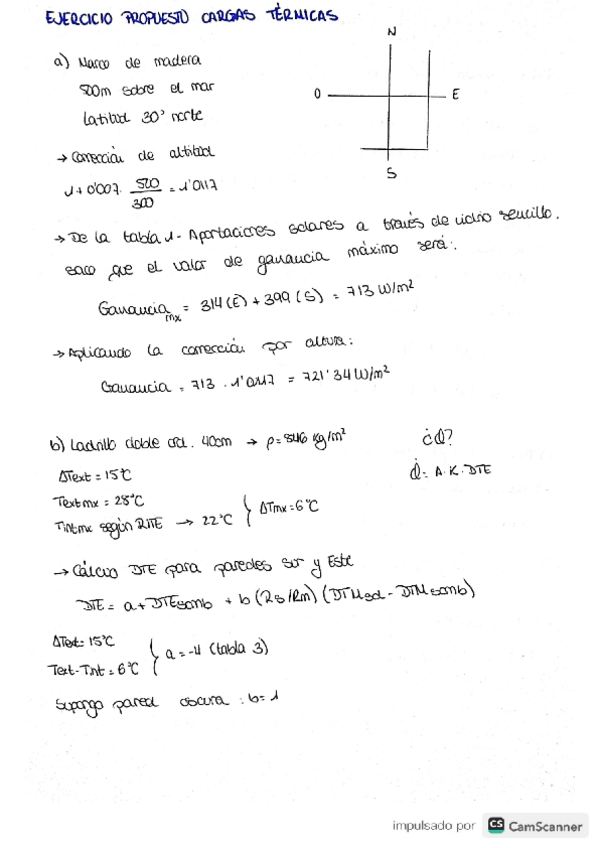 EJERCICIO PROPUESTO CARGAS TÉRMICAS
a) Marco de madera
500m sobre el mar
Latitud 30° norte
N
O
E
S
→ Corrección de altitud
1 + 0'007 · 500/300 = 1'0117
→ De la tabla 1 - Aportaciones solares a través de vidrio sencillo.
saco que el valor de ganancia máximo será:
Ganancia mx = 314 (E) + 399 (S) = 713 W/m²
→ Aplicando la corrección por altura:
Ganancia = 713 · 1'0117 = 721'34 W/m²
b) Ladrillo doble ord. 40cm → ρ = 846 kg/m²
¿Q̇?
ΔText = 15°C
Q̇ = A · K · DTE
Textmx = 28°C
Tintmx según RITE → 22°C
ΔTmx = 6°C
→ Cálculo DTE para paredes Sur y Este
DTE = a + DTEsomb + b (Rs/Rm) (DTMsol - DTMsomb)
ΔText = 15°C
Text - Tint = 6°C
a = -4 (tabla 3)
Supongo pared oscura : b = 1
impulsado por CS CamScanner